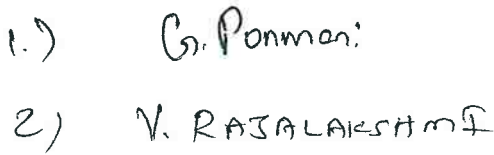 1.) G. Ponmani
2) V. RAJALAKSHMI